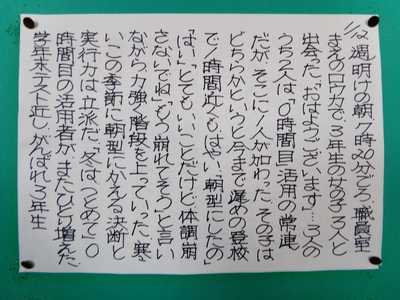 1/12 週明けの朝、7時20分ごろ、職員室
まえのロウカで、3年生の女の子3人と
出会った。「おはようございます」…3人の
うち2人は、0時間目活用の常連
だが、そこに1人が加わった。その子は
どちらかというと今まで遅めの登校
で、1時間近くもはやい。「朝型にしたの」
「はい」「とてもいいことだけど、体調崩
さないでね」「もう崩れてそう」と言い
ながら、力強く階段を上っていった。寒
い、この季節に朝型にかえる決断と
実行力は立派だ。「冬はつとめて」0
時間目の活用者が、またひとり増えた。
学年末テスト近し、がんばれ、3年生